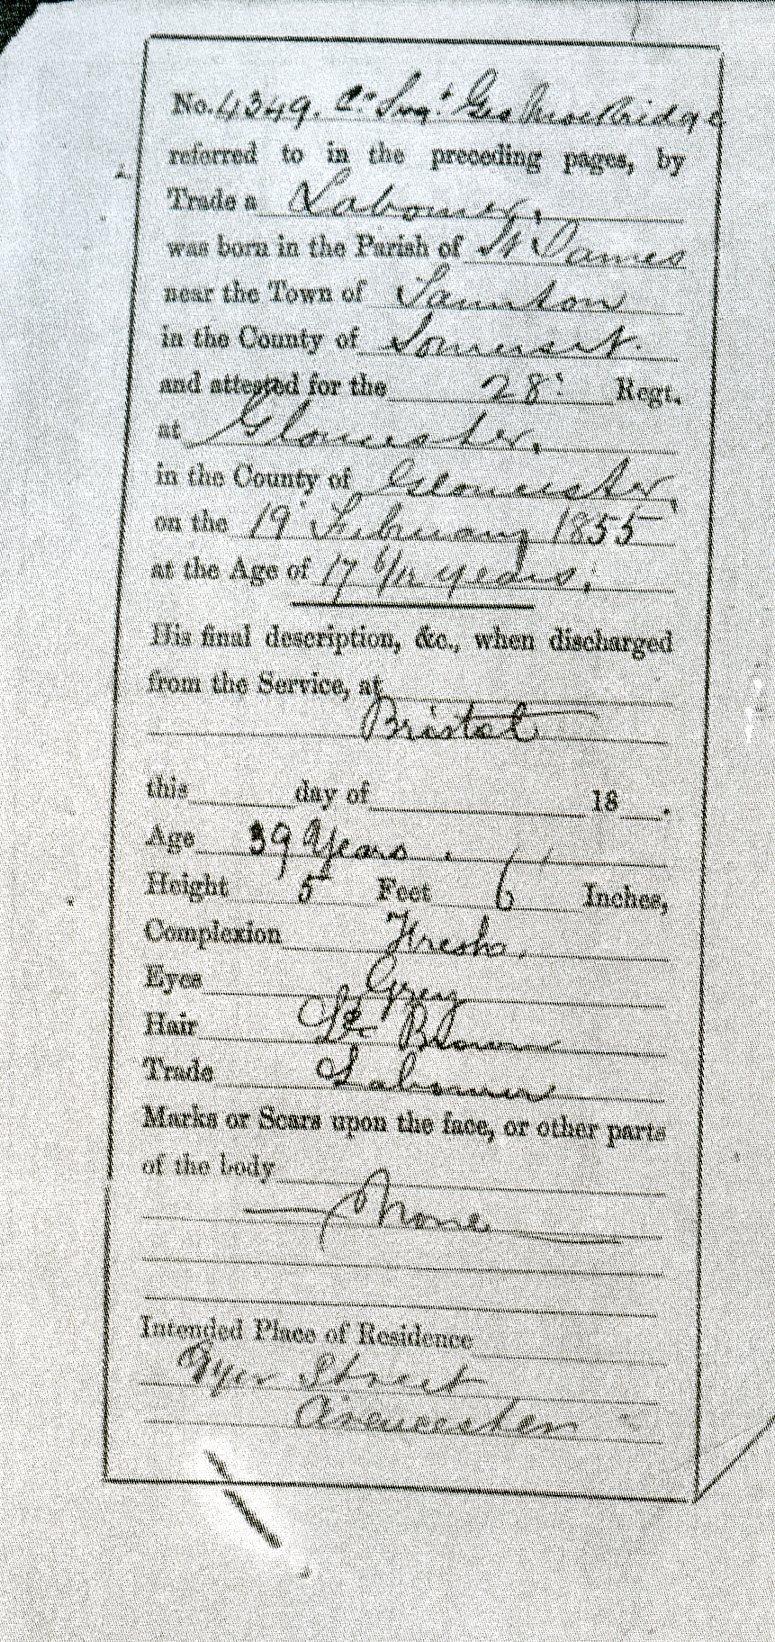 No. 4349. Cr Sergt Geo Mockridge
referred to in the preceding pages, by
Trade a Labourer,
was born in the Parish of St James
near the Town of Taunton
in the County of Somerset.
and attested for the 28: Regt.
at Gloucester,
in the County of Gloucester,
on the 19 February 1855
at the Age of 17 6/12 years.
His final description, &c., when discharged
from the Service, at
Bristol
this day of 18 .
Age 39 Years.
Height 5 Feet 6 Inches,
Complexion Fresh.
Eyes Grey
Hair Lt Brown
Trade Labourer
Marks or Scars upon the face, or other parts
of the body
None
Intended Place of Residence
Street
Cirencester